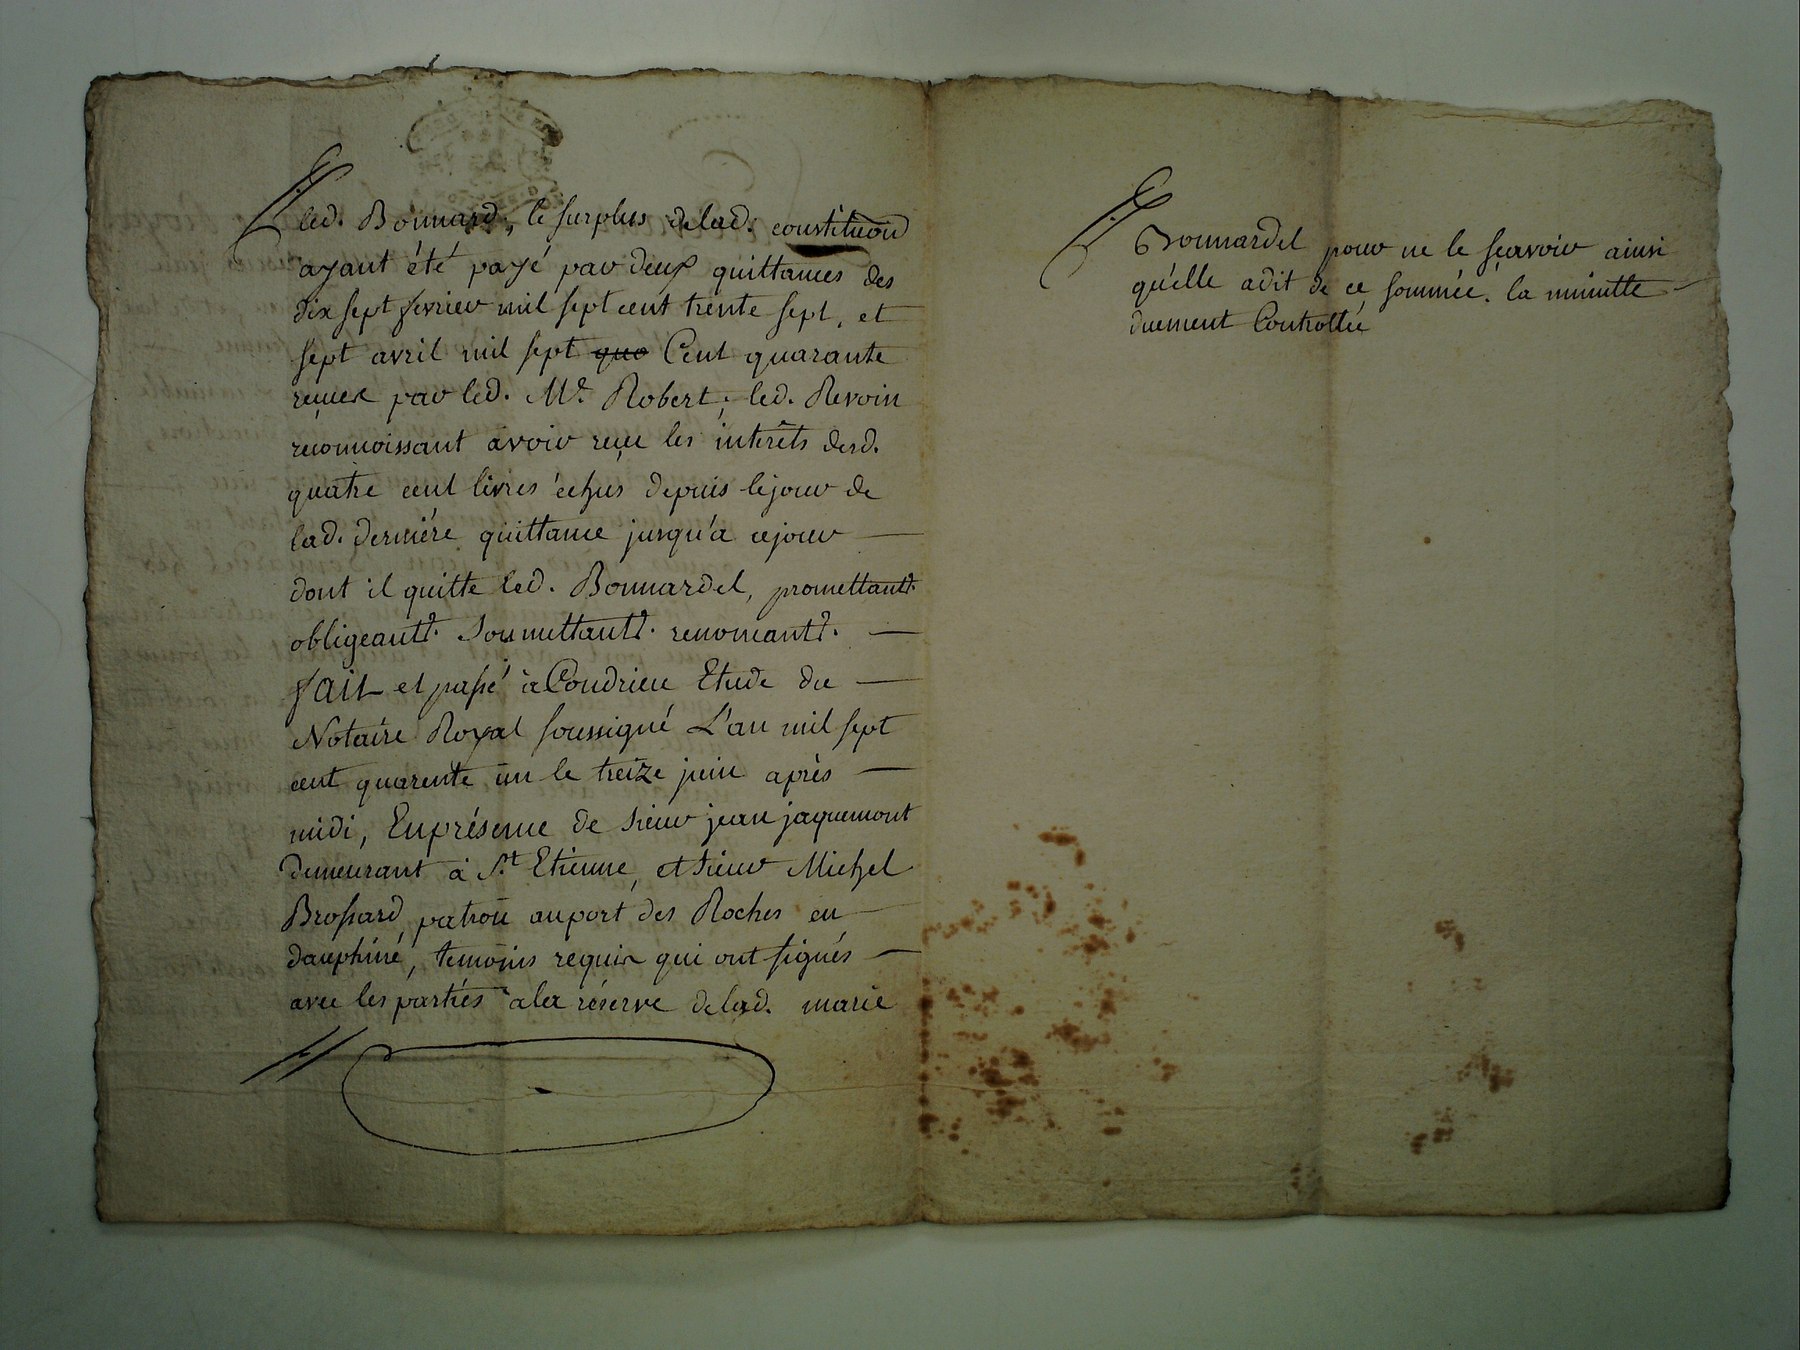 led. Bonnard, le surplus delad. constitution
ayant été payé par deux quittances des
dix sept fevrier mil sept cent trente sept, et
sept avril mil sept quo Cent quarante
reçues par led. Me. Robert; led. Revoin
reconnoissant avoir reçu les interêts desd.
quatre cent livres échus depuis lejour de
lad. derniére quittance jusqu'a cejour
dont il quitte led. Bonnardel, promettantt.
obligeantt. Soumettantt. renonceantt.
fait et passé à Condrieu Etude du
Notaire Royal soussigné L'an mil sept
cent quarente un le treize juin après
midi, En présence de sieur jean jaquemont
demeurant à St. Etienne, et sieur Michel
Brossard, patron au port des Roches en
dauphiné, temoins requis qui ont signés
avec les parties a la réserve delad. marie
Bonnardel pour ne le sçavoir ainsi
qu'elle adit de ce sommée. la minutte
duement Controllée